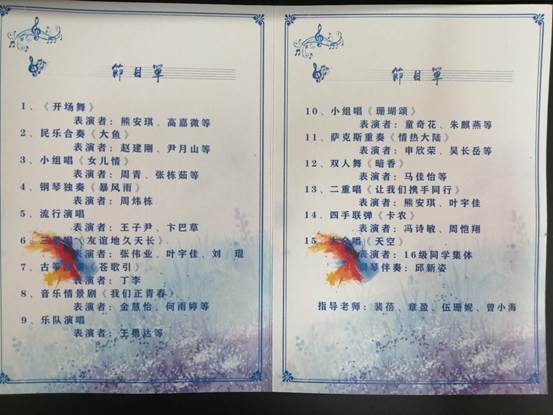 節目單
1、《开场舞》
表演者：熊安琪、高嘉微等
2、民乐合奏《大鱼》
表演者：赵建刚、尹月山等
3、小组唱《女儿情》
表演者：周青、张栋茹等
4、钢琴独奏《暴风雨》
表演者：周炜栋
5、流行演唱
表演者：王子尹、卞巴草
6、三 唱《友谊地久天长》
表演者：张伟业、叶宇佳、刘 琨
7、古筝 苍歌引》
表演者：丁李
8、音乐情景剧《我们正青春》
表演者：金慧怡、何雨婷等
9、乐队演唱
表演者：王勇达等
節目單
10、小组唱《珊瑚颂》
表演者：童奇花、朱麒燕等
11、萨克斯重奏《情热大陆》
表演者：申欣荣、吴长岳等
12、双人舞《暗香》
表演者：马佳怡等
13、二重唱《让我们携手同行》
表演者：熊安琪、叶宇佳
14、四手联弹《卡农》
表演者：冯诗敏、周恺翔
15、 唱《天空》
表演者：16级同学集体
钢琴伴奏：邱新姿
指导老师：裴蓓、章盈、伍珊妮、曾小海